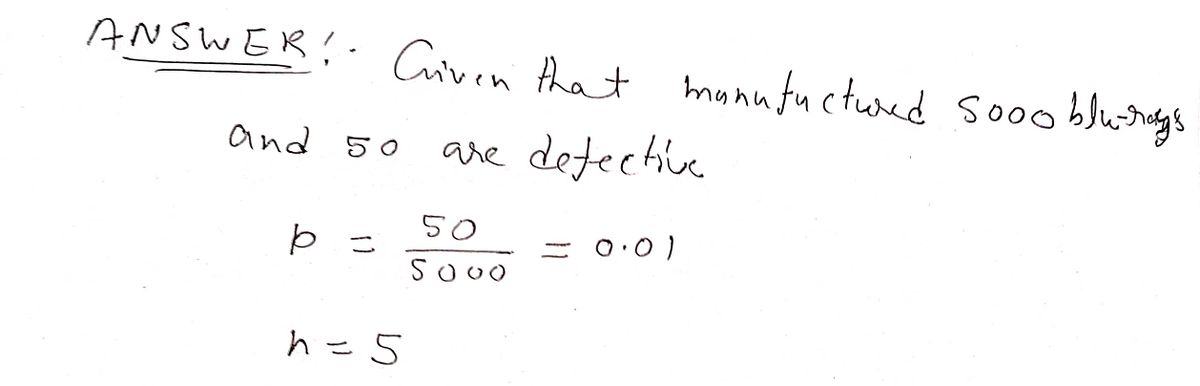 ANSWER:. Given that manufactured 5000 blu-rays
and 50 are defective
p = 50/5000 = 0.01
n = 5